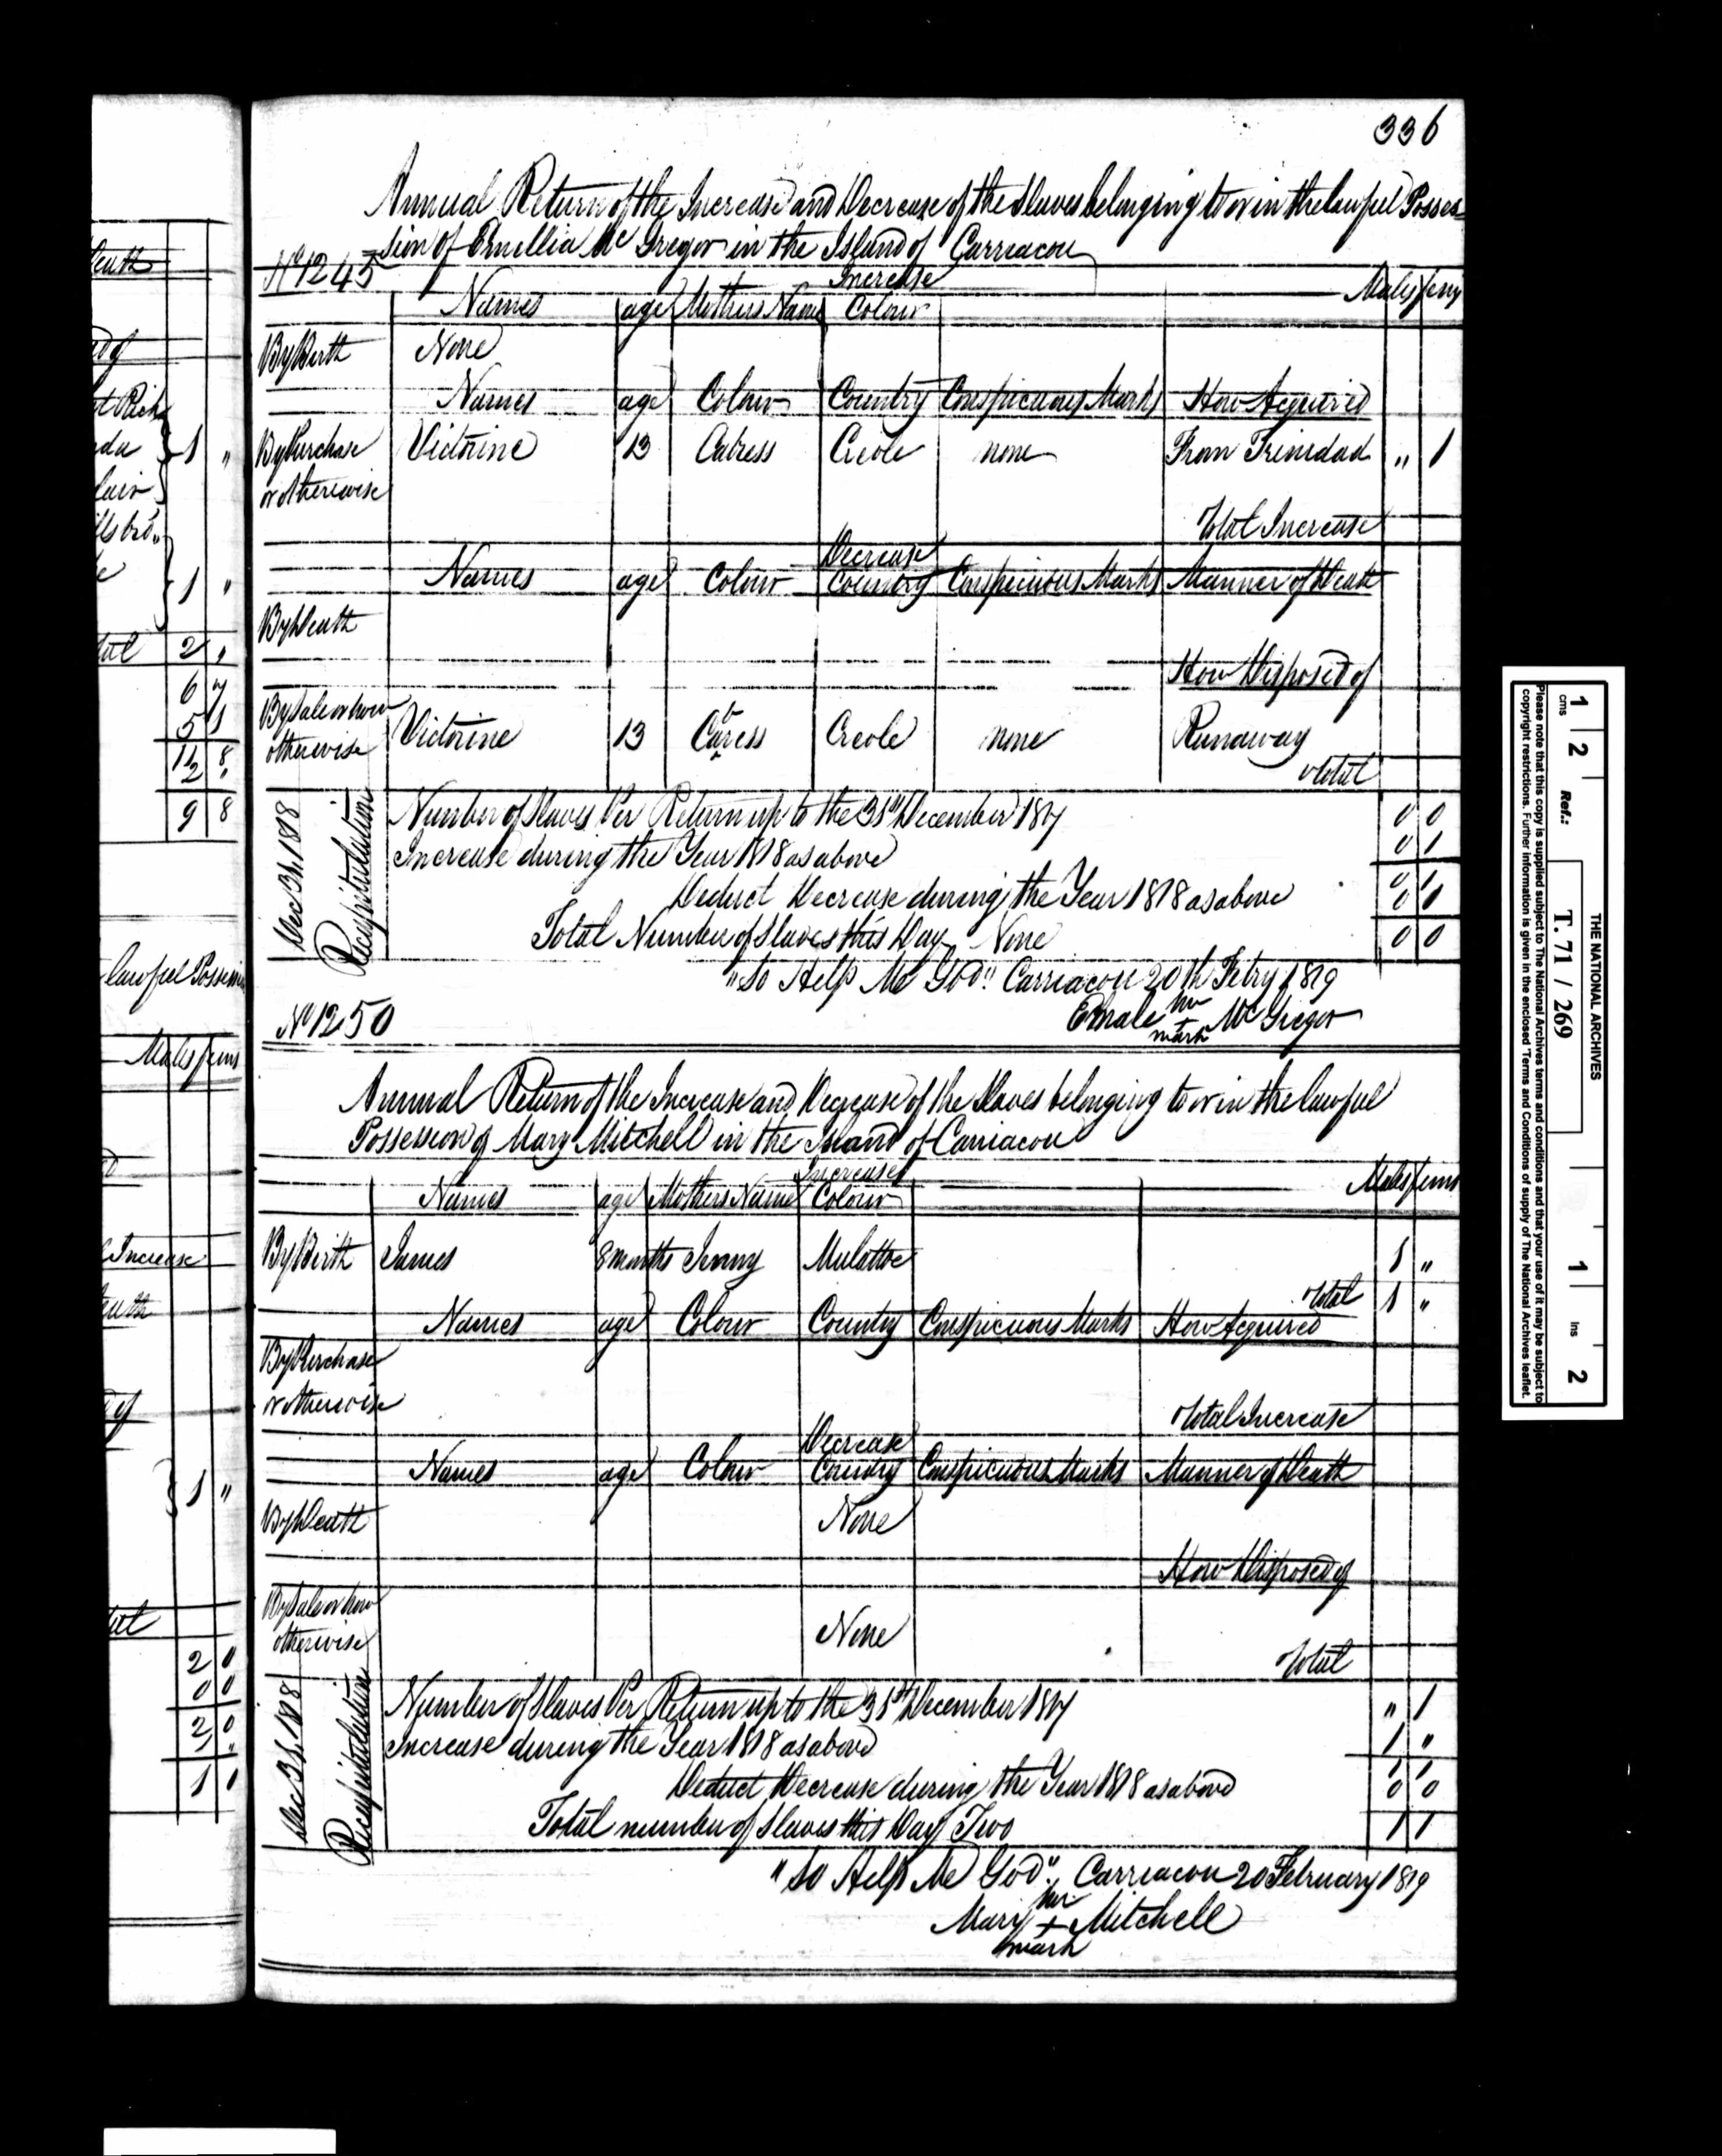 336
Annual Return of the Increase and Decrease of the Slaves belonging to or in the lawful Posses-
sion of Emellia Mc Gregor in the Island of Carriacou
No 1245
Increase
Males fems
Names age Mothers Name Colour
By Birth None
Names age Colour Country Conspicuous Marks How Acquired
By Purchase Victorine 13 Cabress Creole none From Trinidad " 1
or otherwise
Total Increase
Decrease
Names age Colour Country Conspicuous Marks Manner of Death
By Death
How Disposed of
By Sale or how Victorine 13 Cabress Creole none Runaway
otherwise
Total
Dec 31, 1818
Recapitulation
Number of Slaves Per Return up to the 31st December 1817 0 0
Increase during the Year 1818 as above 0 1
0 1
Deduct Decrease during the Year 1818 as above 0 1
Total Number of Slaves this Day None 0 0
"So Help Me God" Carriacou 20th Febry 1819
her
Emale McGregor
mark
No 1250
Annual Return of the Increase and Decrease of the Slaves belonging to or in the lawful
Possession of Mary Mitchell in the Island of Carriacou
Increase
Males fems
Names age Mothers Name Colour
By Birth James 8 months Jenny Mulattoe 1 "
Total 1 "
Names age Colour Country Conspicuous Marks How Acquired
By Purchase
or otherwise
Total Increase
Decrease
Names age Colour Country Conspicuous Marks Manner of Death
By Death None
How Disposed of
By Sale or how
otherwise None
Total
Dec 31, 1818
Recapitulation
Number of Slaves Per Return up to the 31st December 1817 " 1
Increase during the Year 1818 as above 1 "
1 1
Deduct Decrease during the Year 1818 as above 0 0
Total number of Slaves this Day Two 1 1
"So Help Me God" Carriacou 20 February 1819
her
Mary + Mitchell
mark
THE NATIONAL ARCHIVES
1 2 1 2
cms Ref.: T. 71 / 269 Ins
Please note that this copy is supplied subject to The National Archives terms and conditions and that your use of it may be subject to
copyright restrictions. Further information is given in the enclosed 'Terms and Conditions of supply of The National Archives' leaflet.